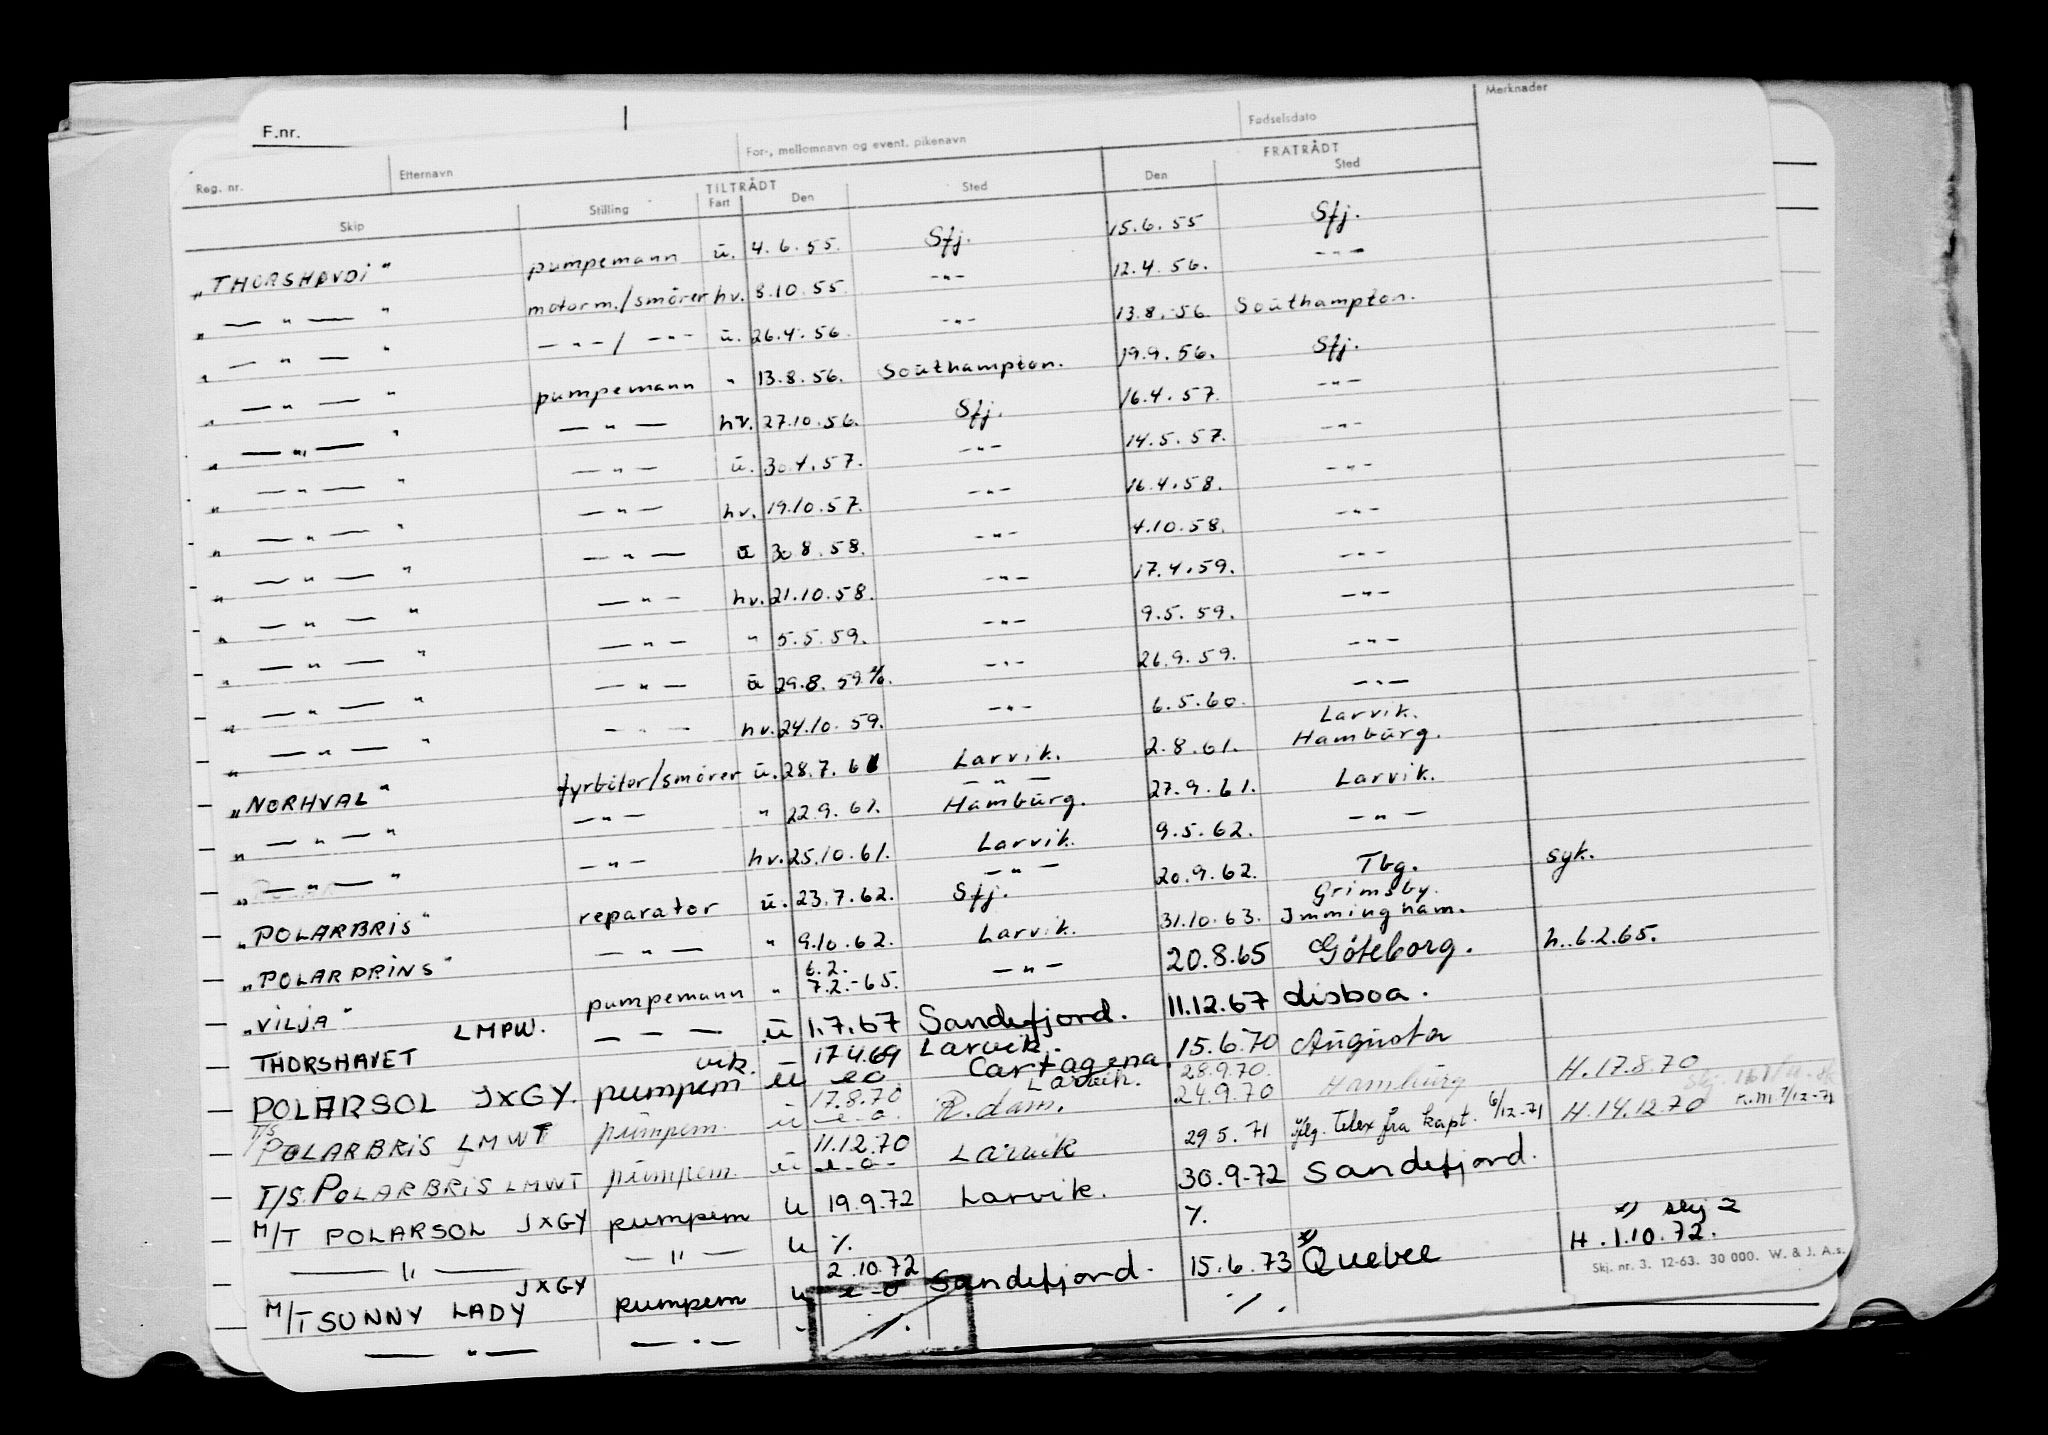 F.nr.
Reg. nr. Etternavn For-, mellomnavn og event. pikenavn Fødselsdato Merknader
TILTRÅDT FRATRÅDT
Skip Stilling Fart Den Sted Den Sted
"THORSHAVDI" pumpemann u. 4.6.55. Sfj. 15.6.55 Sfj.
" — " — " motorm./smörer hv. 8.10.55. -"- 12.4.56. -"-
" — " — " -"-/-"- u. 26.4.56. -"- 13.8.56. Southampton.
" — " — " pumpemann " 13.8.56. Southampton. 19.9.56. Sfj.
" — " — " — " — hv. 27.10.56. Sfj. 16.4.57. -"-
" — " — " — " — u. 30.4.57. -"- 14.5.57. -"-
" — " — " — " — hv. 19.10.57. -"- 16.4.58. -"-
" — " — " — " — u 30.8.58. -"- 4.10.58. -"-
" — " — " — " — hv. 21.10.58. -"- 17.4.59. -"-
" — " — " — " — " 5.5.59. -"- 9.5.59. -"-
" — " — " — " — u 29.8.59. -"- 26.9.59. -"-
" — " — " — " — hv. 24.10.59. -"- 6.5.60. -"-
"NORHVAL" fyrböter/smörer u. 28.7.61 Larvik. 2.8.61. Larvik. Hamburg.
" — " — " — " — " 22.9.61. — " — Hamburg. 27.9.61. Larvik.
" — " — " — " — hv. 25.10.61. Larvik. 9.5.62. — " —
"POLARBRIS" reparator u. 23.7.62. — " — Sfj. 20.9.62. Tbg. syk.
"POLARPRINS" — " — " 9.10.62. Larvik. 31.10.63. Grimsby. Immingham.
"VILJA" pumpemann " 6.2. 7.2.-65. — " — 20.8.65 Göteborg. h. 6.2.65.
THORSHAVET LMPW. — — ü 1.7.67 Sandefjord. 11.12.67 Lisboa.
POLARSOL JXGY. vik. pumpem ü 17.4.69 e o Larvik. Cartagena. 15.6.70 Augusta
T/S POLARBRIS LMWT pumpem. ü 17.8.70 e-o. Larvik. R.dam. 28.9.70. 24.9.70 Hamburg H. 17.8.70
T/S. POLARBRIS LMWT pumpem. ü 11.12.70 e-o- Larvik 29.5.71 iflg. telex fra kapt. 6/12-71 H. 14.12.70
M/T POLARSOL JXGY pumpem u 19.9.72 Larvik. 30.9.72 Sandefjord.
— " — — " — u %. %.
M/T SUNNY LADY JXGY pumpem u 2.10.72 e-o Sandefjord. 15.6.73 x) Quebec x) skj 2 H. 1.10.72.
— " — — " — - ./. ./.
Skj. nr. 3. 12-63. 30 000. W. & J. A.s.